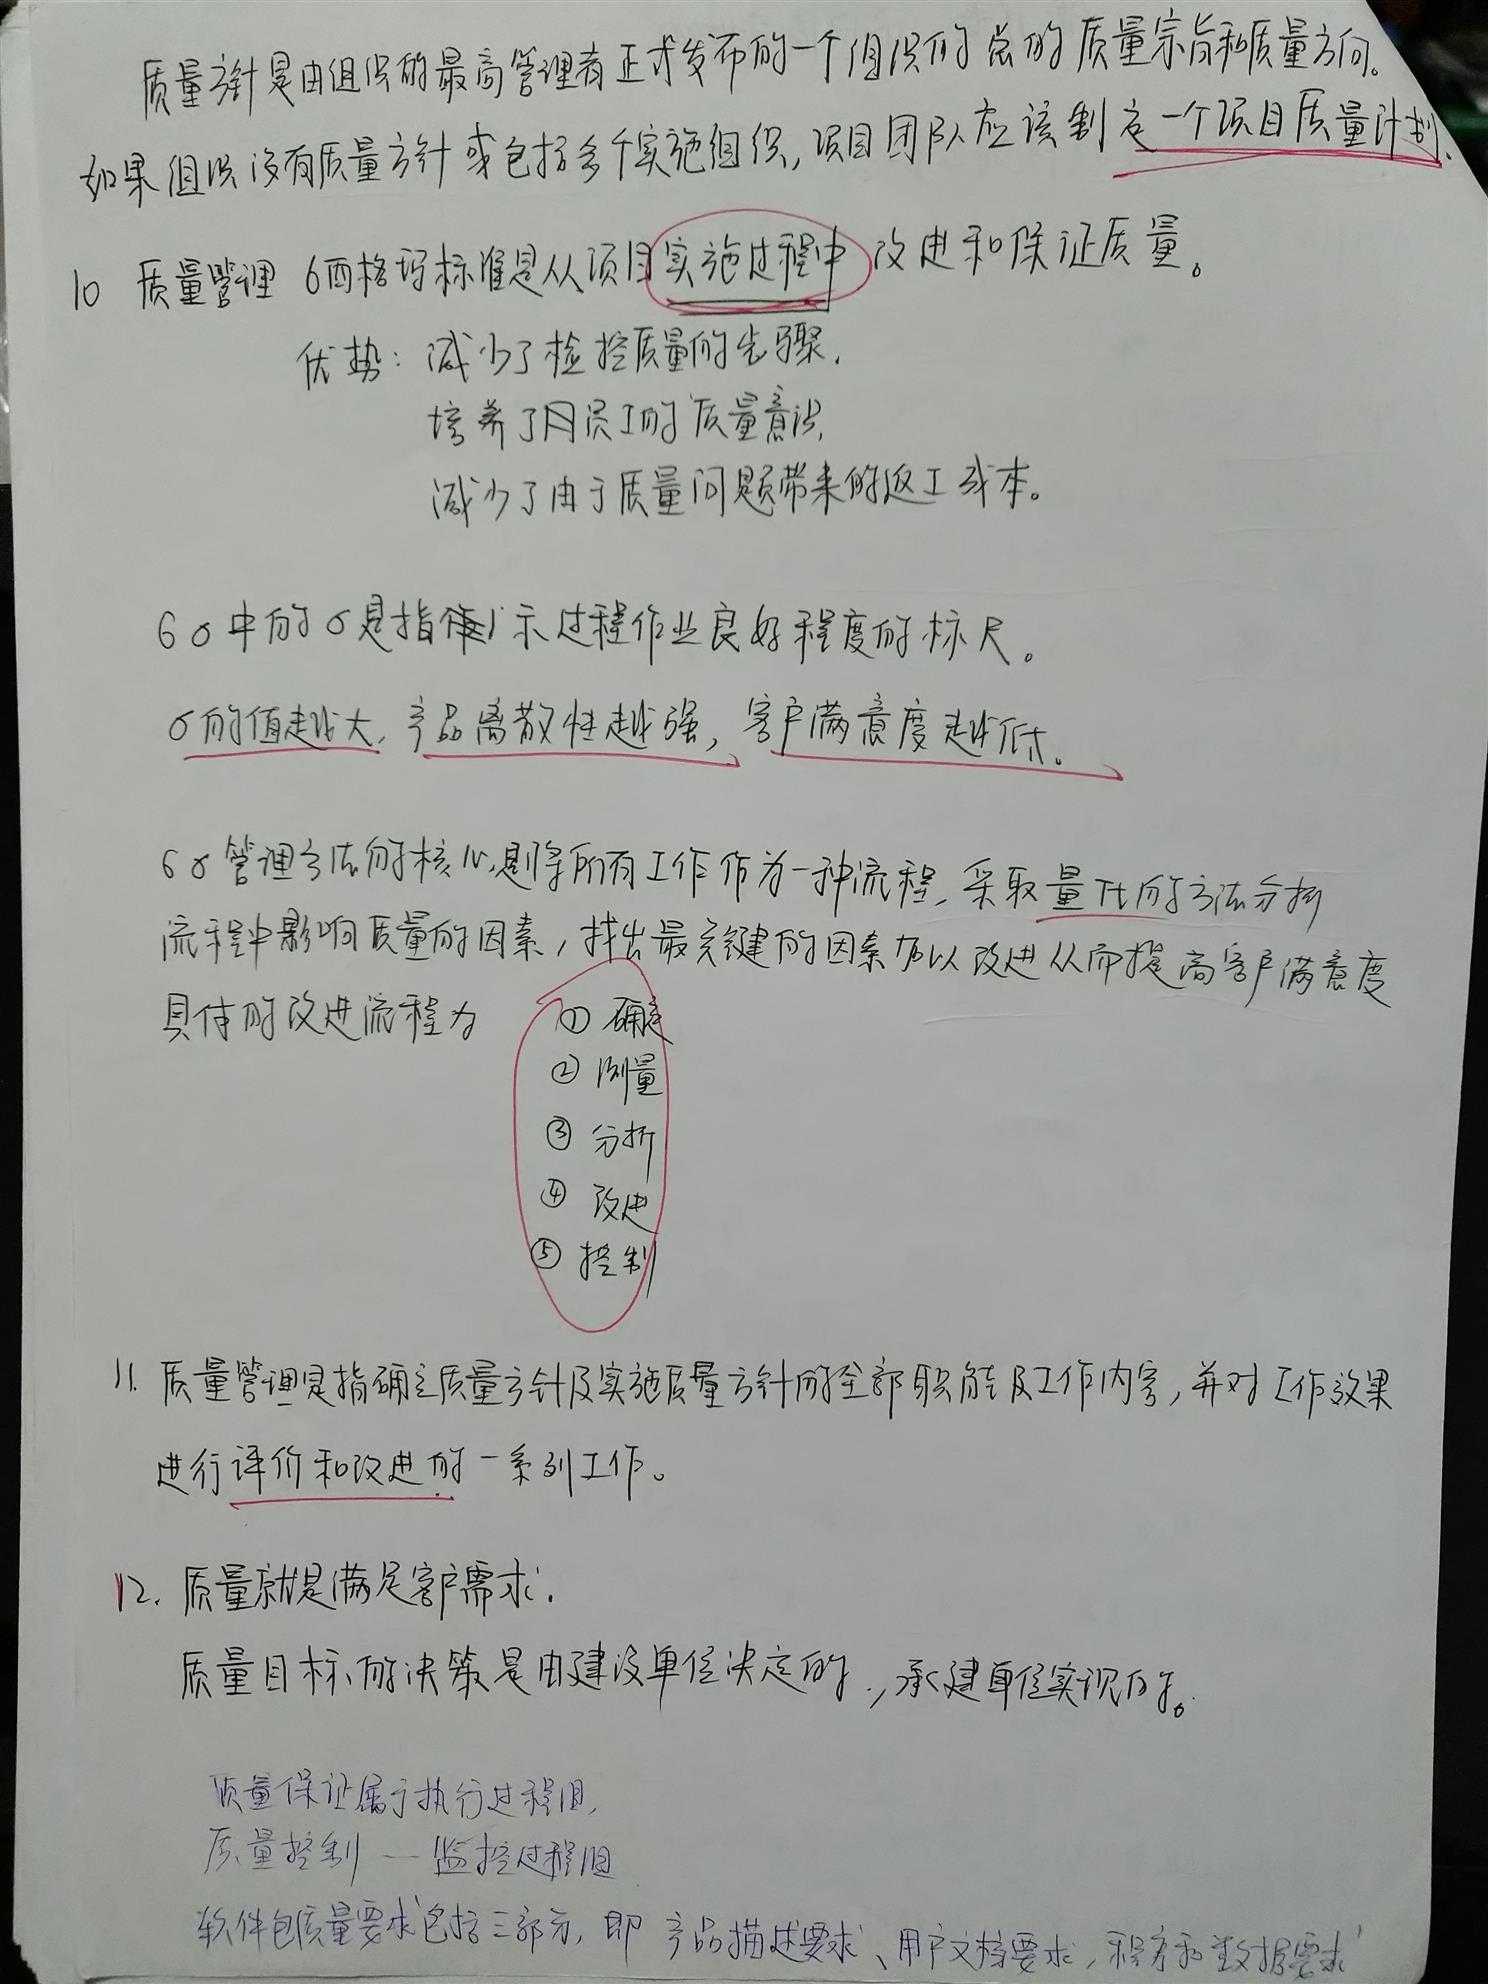 质量方针是由组织的最高管理者正式发布的一个组织的总的质量宗旨和质量方向。
如果组织没有质量方针或包括多个实施组织,项目团队应该制定一个项目质量计划.
10 质量管理 6西格玛标准是从项目实施过程中改进和保证质量。
优势:减少了检控质量的步骤.
培养了员工的质量意识.
减少了由于质量问题带来的返工成本。
6σ中的σ是指示过程作业良好程度的标尺。
σ的值越大,产品离散性越强,客户满意度越低。
6σ管理方法的核心是将所有工作作为一种流程,采取量化的方法分析
流程中影响质量的因素,找出最关键的因素加以改进从而提高客户满意度
具体的改进流程为 ① 确定
② 测量
③ 分析
④ 改进
⑤ 控制
11. 质量管理是指确立质量方针及实施质量方针的全部职能及工作内容,并对工作效果
进行评价和改进的一系列工作。
12. 质量就是满足客户需求.
质量目标的决策是由建设单位决定的,承建单位实现的。
质量保证属于执行过程组,
质量控制 — 监控过程组
软件包质量要求包括三部分,即 产品描述要求、用户文档要求,程序和数据要求